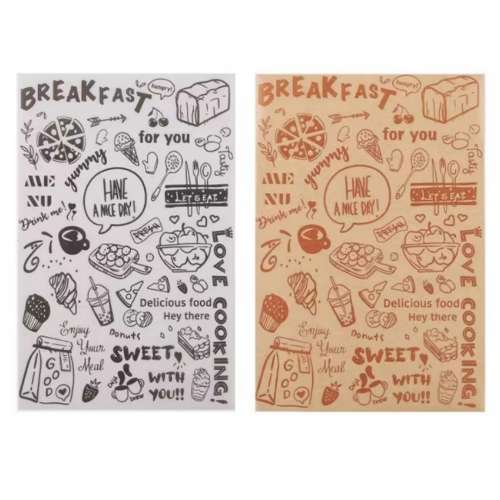 BREAKFAST
hungry!
for you
yummy
Tasty
ME
NU
HAVE
A NICE DAY!
LET'S EAT
Drink me!
FRESH
LOVE COOKING!
Delicious food
Hey there
Enjoy
Your
Meal
Donuts
SWEET
WITH
YOU!!
GOOD
BREAKFAST
hungry!
for you
yummy
Tasty
ME
NU
HAVE
A NICE DAY!
LET'S EAT
Drink me!
FRESH
LOVE COOKING!
Delicious food
Hey there
Enjoy
Your
Meal
Donuts
SWEET
WITH
YOU!!
GOOD